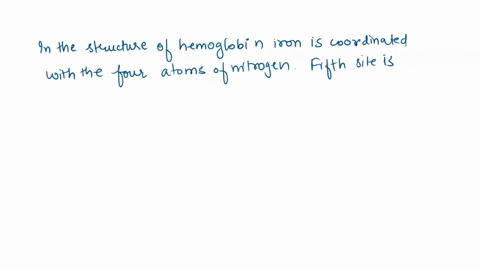 In the structure of hemoglobin iron is coordinated
with the four atoms of nitrogen. Fifth site is